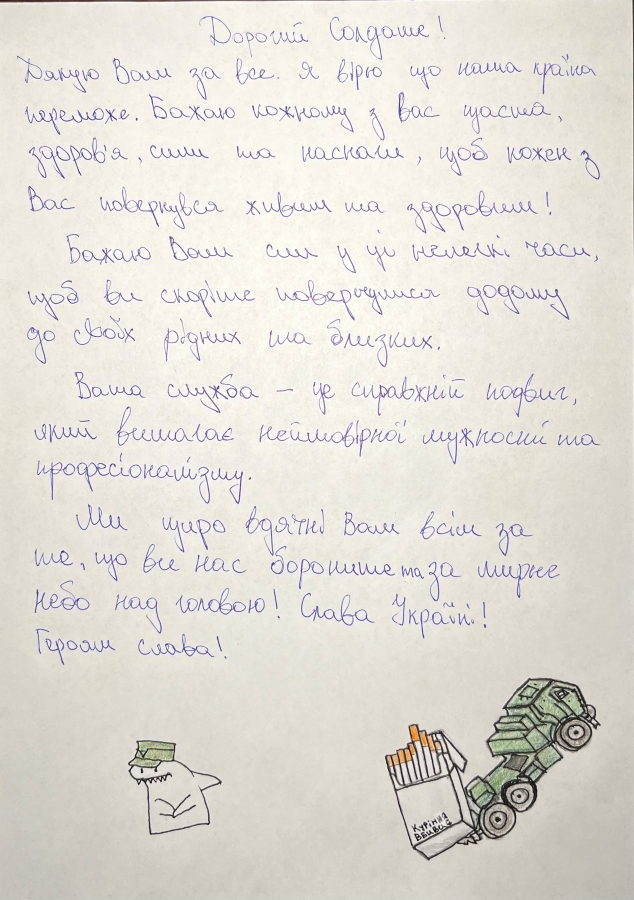 Дорогий Солдате!
Дякую Вам за все. Я вірю що наша країна
переможе. Бажаю кожному з вас щастя,
здоров'я, сили та наснаги, щоб кожен з
Вас повернувся живим та здоровим!
Бажаю Вам сил у ці нелегкі часи,
щоб ви скоріше повернулися додому
до своїх рідних та близких.
Ваша служба – це справжній подвиг,
який вимагає неймовірної мужності та
професіоналізму.
Ми щиро вдячні Вам всім за
те, що ви нас бороните та за мирне
небо над головою! Слава Україні!
Героям слава!
Куріння
вбиває